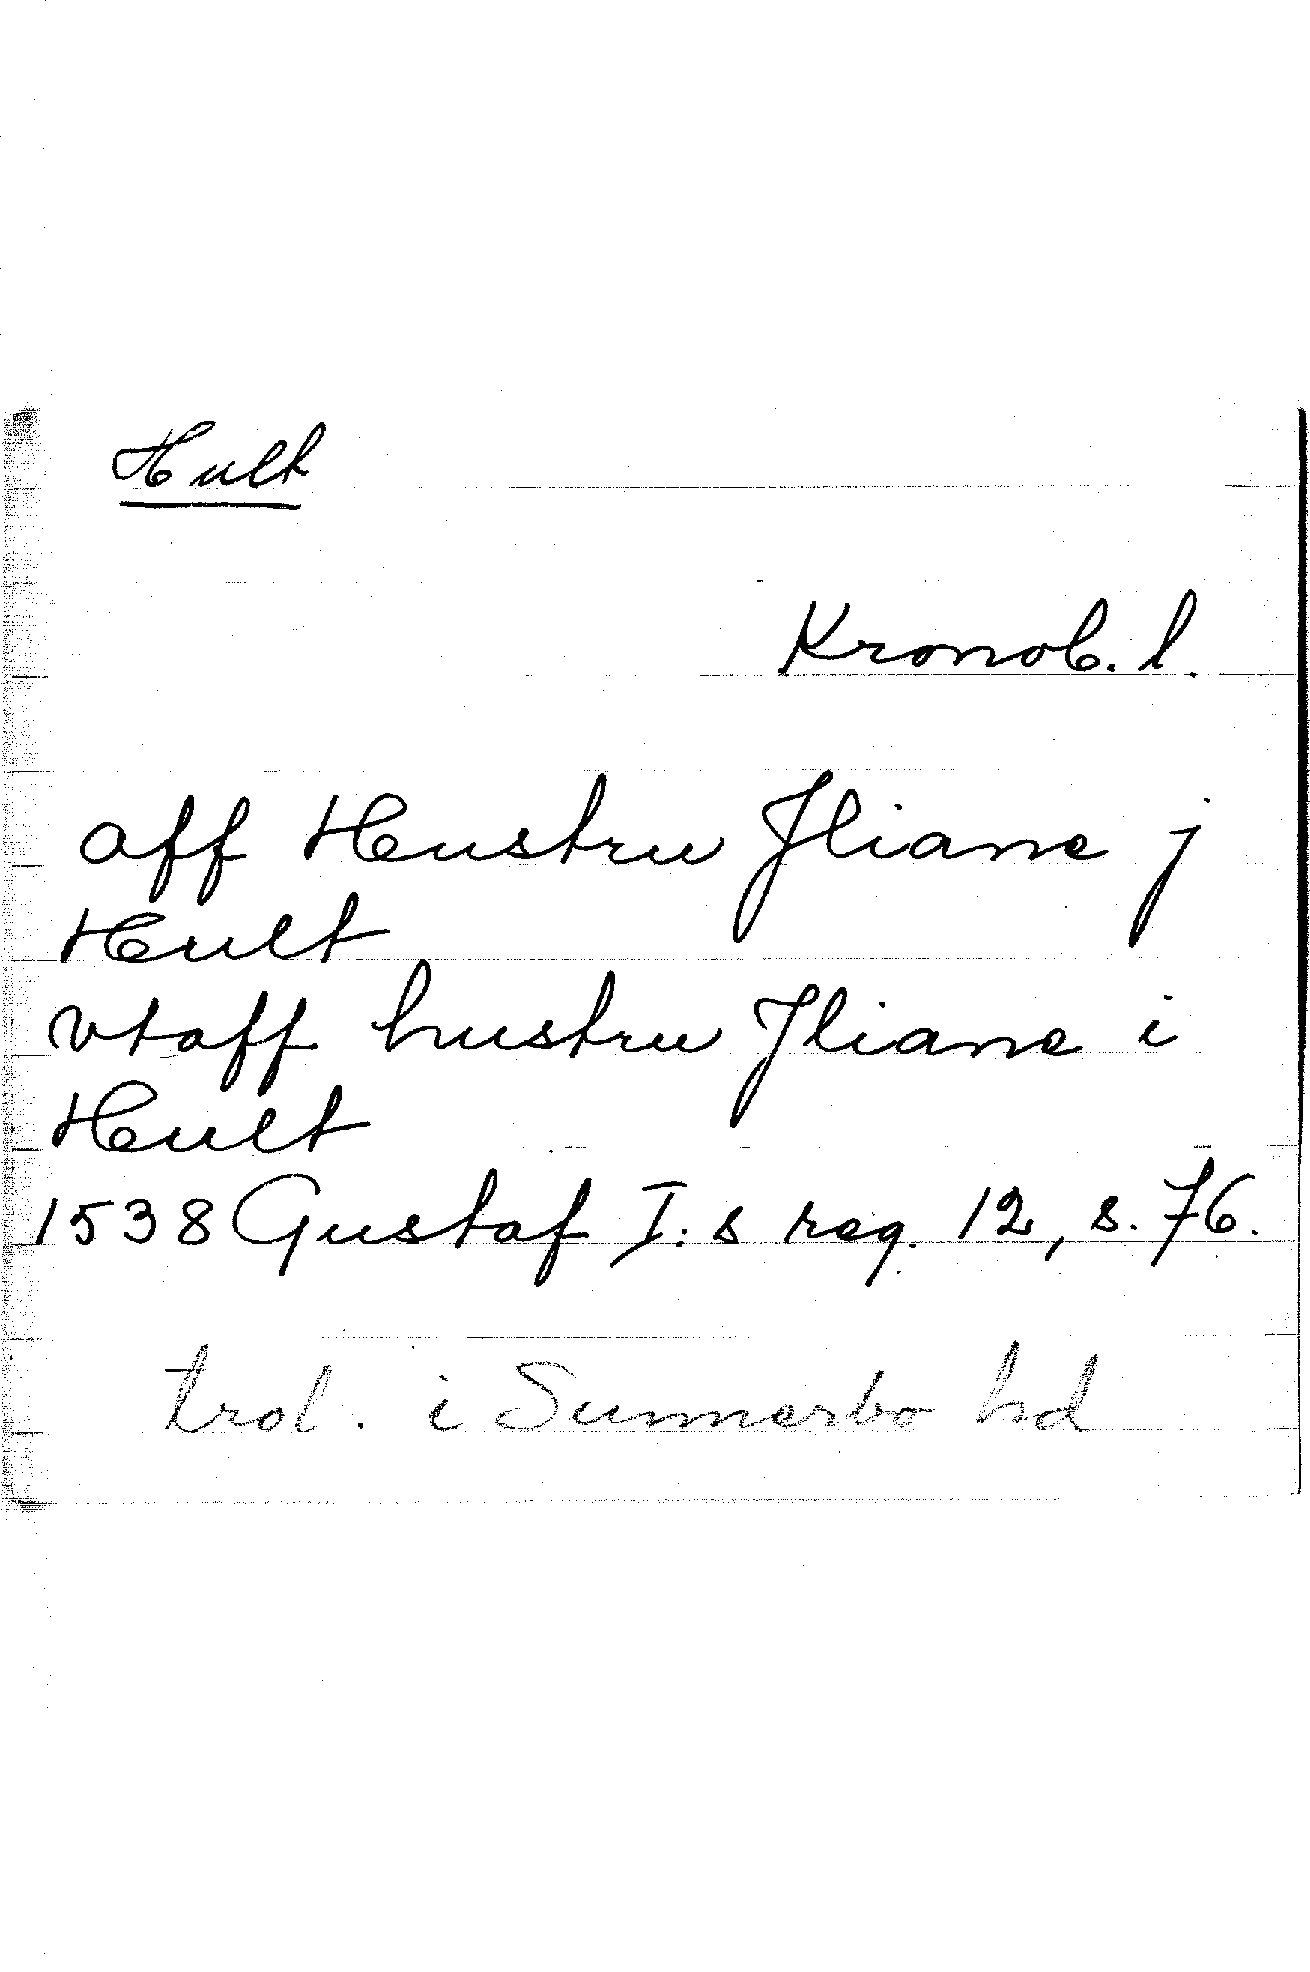 Hult
Kronob. l.
aff Hustru Jliane j
Hult
vtaff hustru Jliane i
Hult
1538 Gustaf I:s reg. 12, s. 76.
trol. i Sunnerbo hd